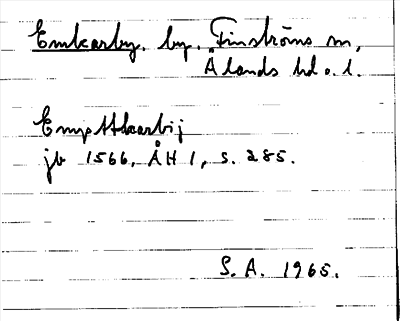 Emkarby, by, Finströms sn,
Ålands hd o. l.
Emptkarbij
jb 1566, ÅH 1, s. 285.
S. A. 1965.